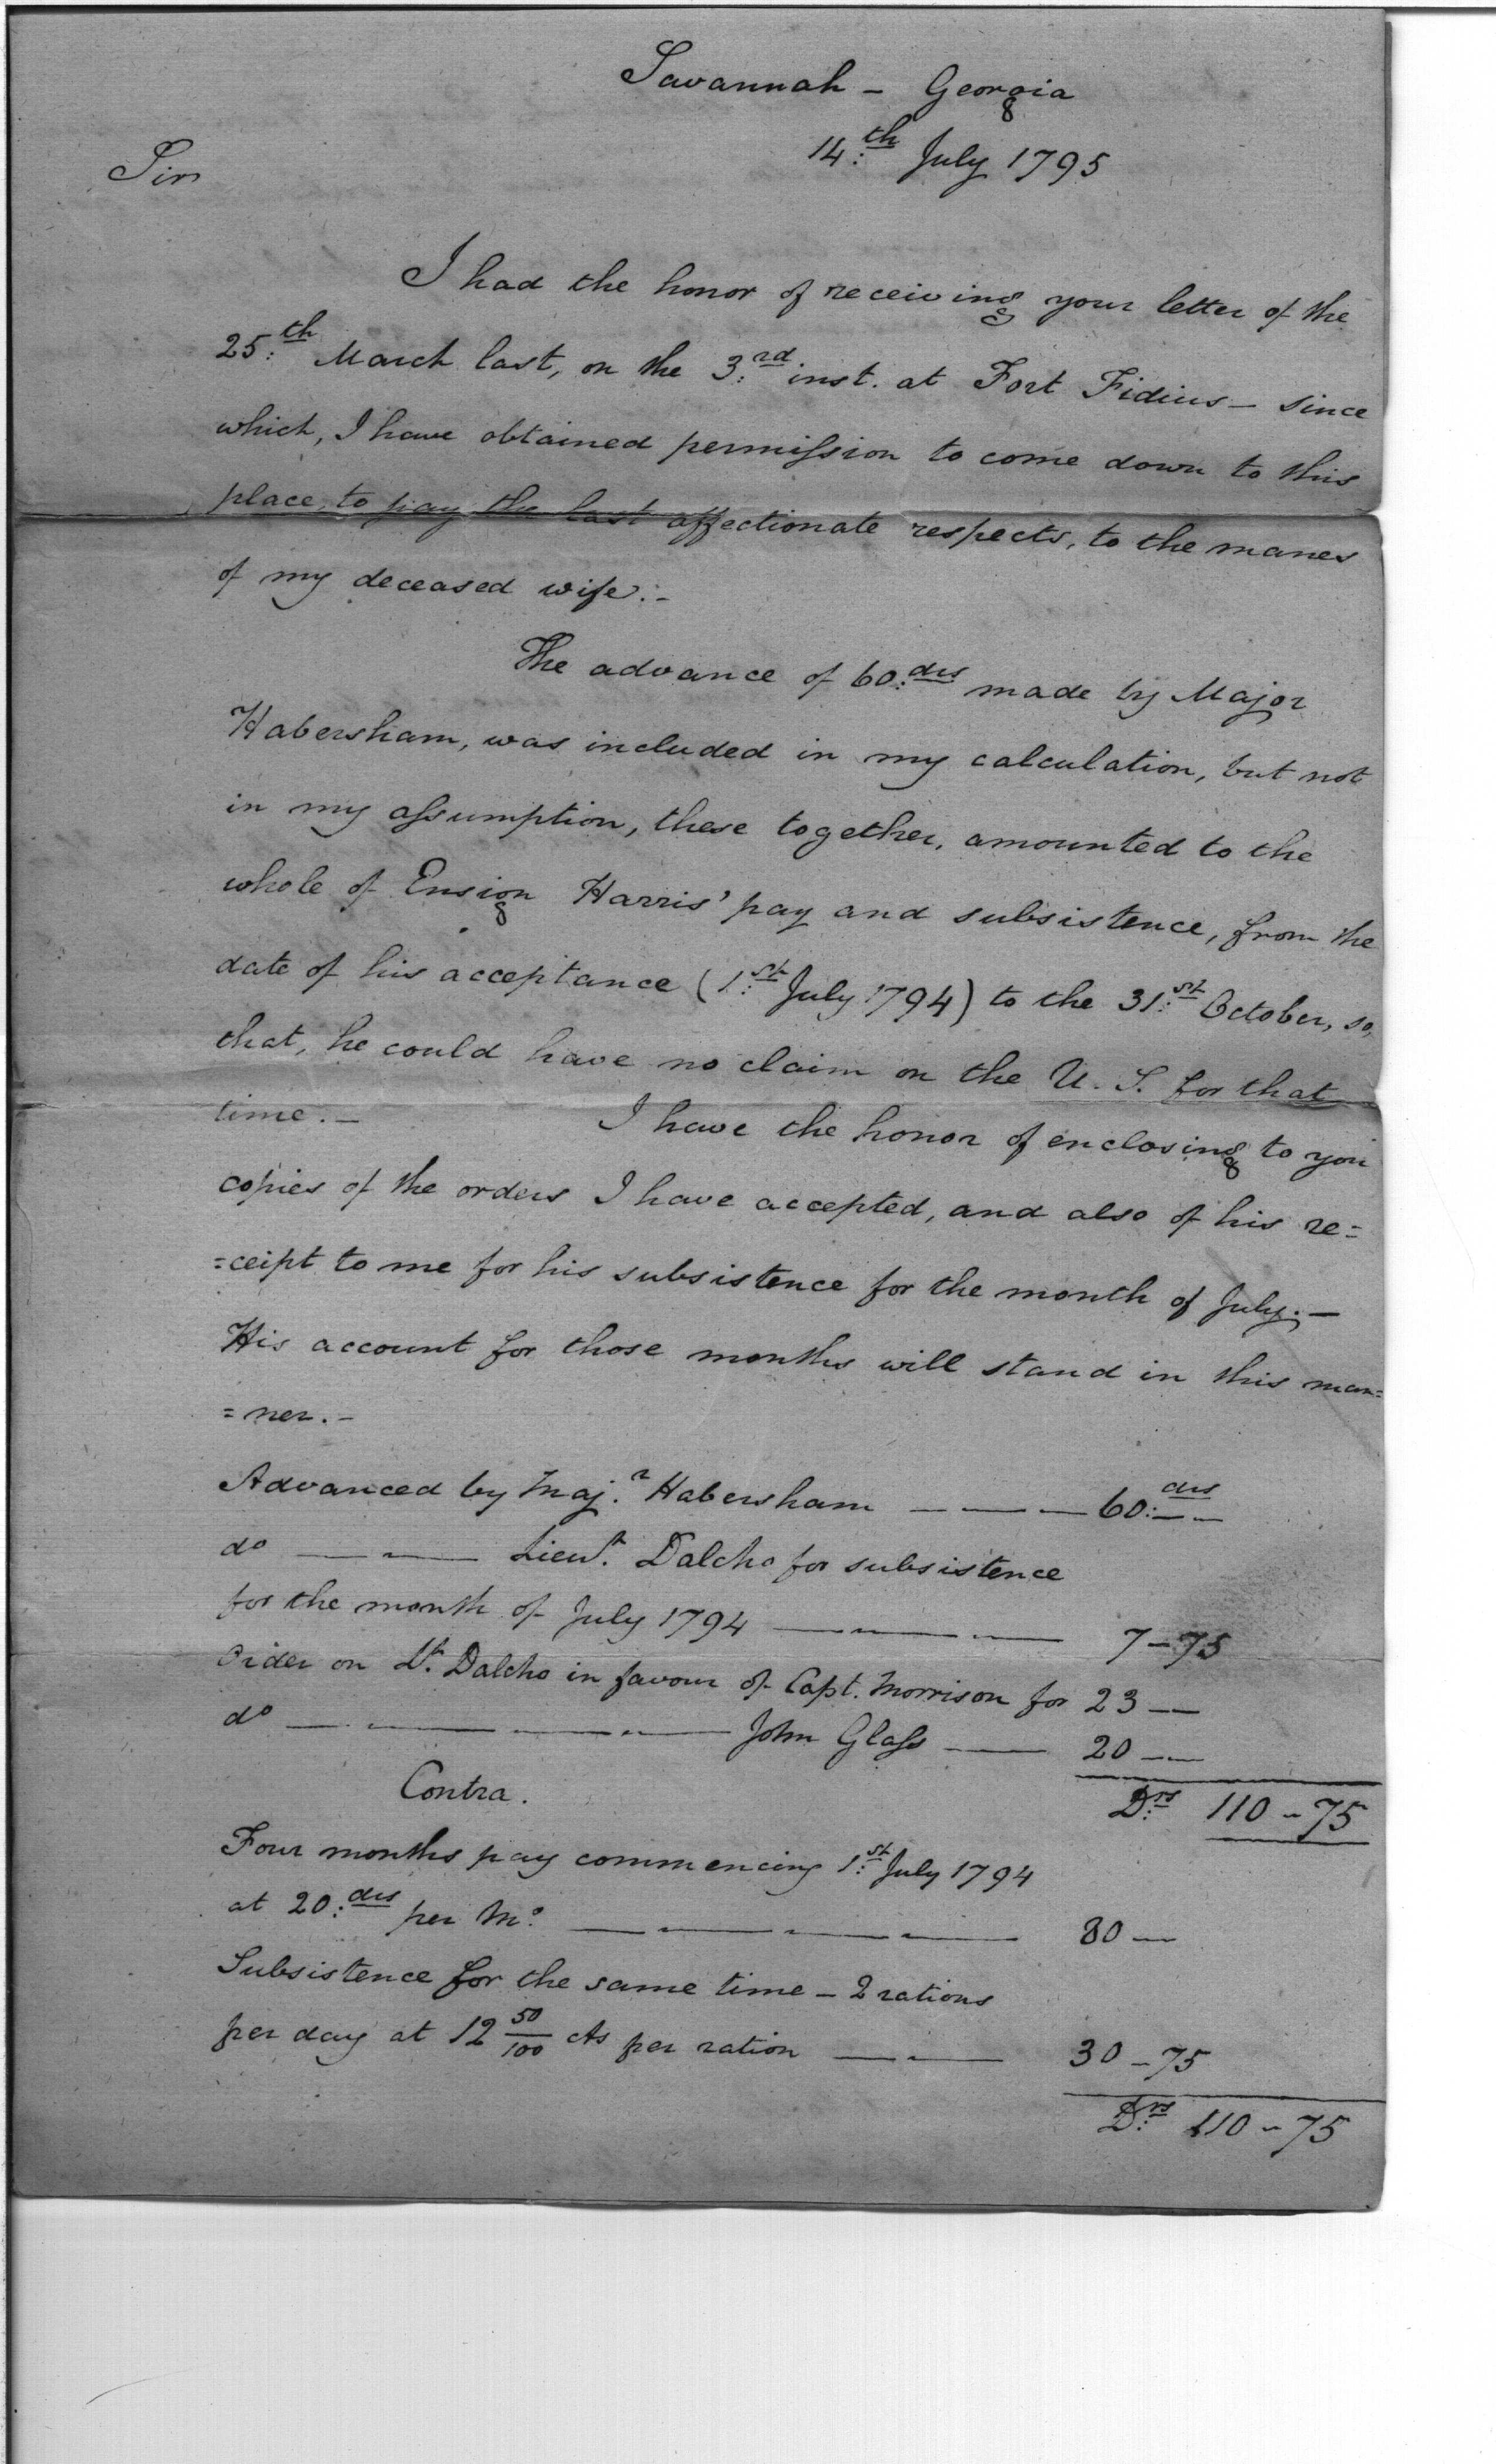 Savannah - Georgia
14:th July 1795
Sir
I had the honor of receiving your letter of the
25:th March last, on the 3:rd inst. at Fort Fidius - since
which, I have obtained permiſsion to come down to this
place, to pay the last affectionate respects, to the manes
of my deceased wife.-
The advance of 60:drs made by Major
Habersham, was included in my calculation, but not
in my aſsumption, these together, amounted to the
whole of Ensign Harris' pay and subsistence, from the
date of his acceptance (1:st July 1794) to the 31:st October, so,
that, he could have no claim on the U. S. for that
time.- I have the honor of enclosing to you
copies of the orders I have accepted, and also of his re=
=ceipt to me for his subsistence for the month of July.-
His account for those months will stand in this man=
=ner.-
Advanced by Maj.r Habersham — — — 60:drs — -
do — — — Lieut. Dalcho for subsistence
for the month of July 1794 — — — 7-75
Order on Lt. Dalcho in favour of Capt. Morrison for 23 —
do — — — — John Glaſs — 20 —
Contra. D:rs 110-75
Four months pay commencing 1:st July 1794
at 20:drs per Mo. — — — — 80 —
Subsistence for the same time - 2 rations
per day at 12 50/100 cts per ration — — 30-75
D:rs 110-75